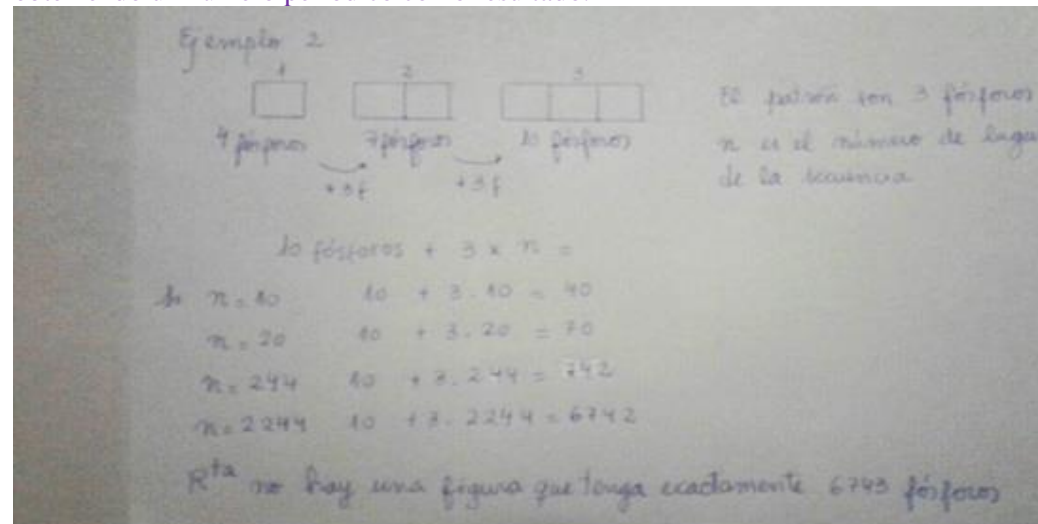 Ejemplo 2
1 2 3
4 fósforos 7 fósforos 10 fósforos
+3f +3f
El patrón son 3 fósforos
n es el número de lugar
de la secuencia
10 fósforos + 3 x n =
Si n=10 10 + 3.10 = 40
n=20 10 + 3.20 = 70
n=244 10 + 3.244 = 742
n=2244 10 + 3.2244 = 6742
Rta no hay una figura que tenga exactamente 6743 fósforos